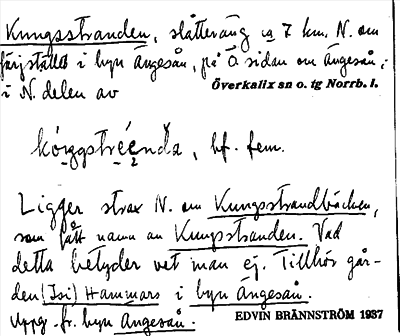 Kungsstranden, slåtteräng ca 7 km. N. om
färjstället i byn Ängesån, på Ö sidan om Ängesån,
i N. delen av
Överkalix sn o. tg Norrb. l.
bf. fem.
Ligger strax N. om Kungsstrandbäcken,
som fått namn av Kungsstranden. Vad
detta betyder vet man ej. Tillhör går-
den (Isi) Hammars i byn Ängesån.
Uppg. fr. byn Ängesån.
EDVIN BRÄNNSTRÖM 1937